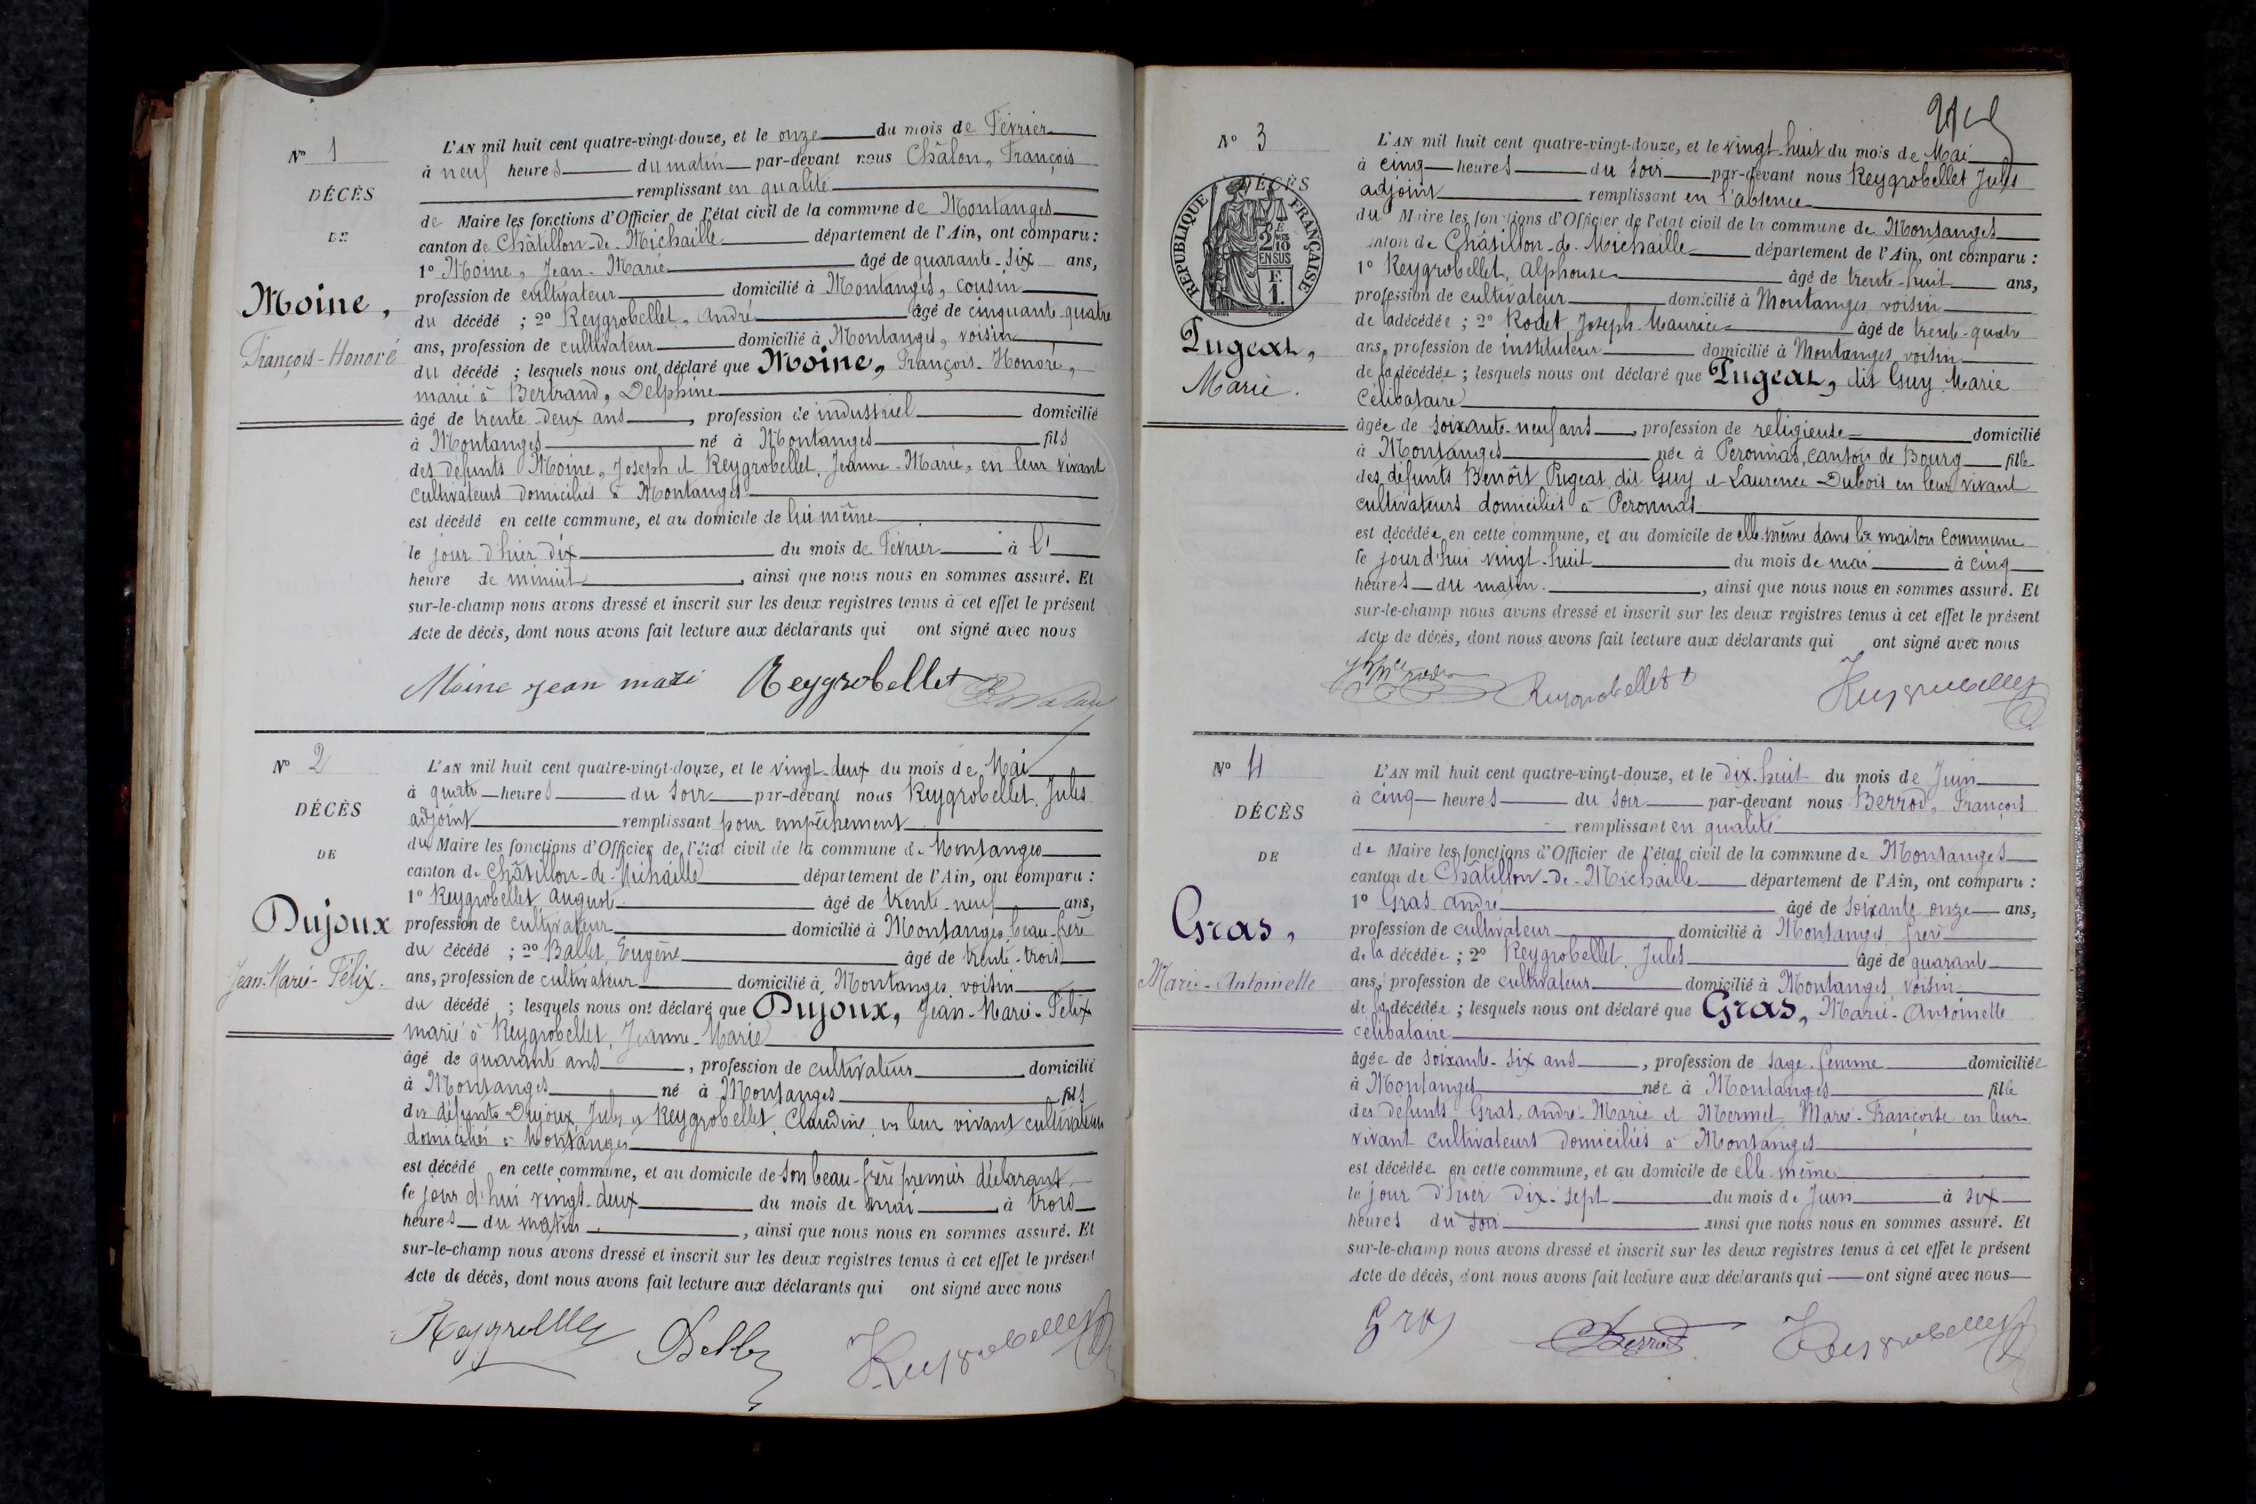 N° 1
DÉCÈS
DE
Moine,
François-Honoré
L'AN mil huit cent quatre-vingt-douze, et le onze du mois de Février
à neuf heures du matin par-devant nous Châlon, François
remplissant en qualité
de Maire les fonctions d'Officier de l'état civil de la commune de Montanges
canton de Châtillon-de-Michaille département de l'Ain, ont comparu :
1° Moine, Jean-Marie âgé de quarante-six ans,
profession de cultivateur domicilié à Montanges, cousin
du décédé ; 2° Reygrobellet, André âgé de cinquante-quatre
ans, profession de cultivateur domicilié à Montanges, voisin
du décédé ; lesquels nous ont déclaré que Moine, François-Honoré,
marié à Bertrand, Delphine
âgé de trente-deux ans, profession de industriel domicilié
à Montanges né à Montanges fils
des défunts Moine, Joseph et Reygrobellet, Jeanne-Marie, en leur vivant
cultivateurs domiciliés à Montanges
est décédé en cette commune, et au domicile de lui même
le jour d'hier dix du mois de Février à l'
heure de minuit, ainsi que nous nous en sommes assuré. Et
sur-le-champ nous avons dressé et inscrit sur les deux registres tenus à cet effet le présent
Acte de décès, dont nous avons fait lecture aux déclarants qui ont signé avec nous
Moine jean mari Reygrobellet
N° 2
DÉCÈS
DE
Dujoux
Jean-Marie-Félix.
L'AN mil huit cent quatre-vingt-douze, et le vingt-deux du mois de Mai
à quatre heures du soir par-devant nous Reygrobellet, Jules
adjoint remplissant pour empêchement
du Maire les fonctions d'Officier de l'état civil de la commune de Montanges
canton de Châtillon-de-Michaille département de l'Ain, ont comparu :
1° Reygrobellet August âgé de trente-neuf ans,
profession de cultivateur domicilié à Montanges, beau-frère
du décédé ; 2° Ballet, Eugène âgé de trente-trois
ans, profession de cultivateur domicilié à Montanges, voisin
du décédé ; lesquels nous ont déclaré que Dujoux, Jean-Marie-Félix
marié à Reygrobellet, Jeanne-Marie
âgé de quarante ans, profession de cultivateur domicilié
à Montanges né à Montanges fils
des défunts Dujoux, Jules et Reygrobellet, Claudine, en leur vivant cultivateurs
domiciliés à Montanges
est décédé en cette commune, et au domicile de son beau-frère premier déclarant
le jour d'hui vingt-deux du mois de mai à trois
heures du matin, ainsi que nous nous en sommes assuré. Et
sur-le-champ nous avons dressé et inscrit sur les deux registres tenus à cet effet le présent
Acte de décès, dont nous avons fait lecture aux déclarants qui ont signé avec nous
Reygrobellet
N° 3
DÉCÈS
RÉPUBLIQUE FRANÇAISE
Pugeat,
Marie.
L'AN mil huit cent quatre-vingt-douze, et le vingt-huit du mois de Mai
à cinq heures du soir par-devant nous Reygrobellet Jules
adjoint remplissant en l'absence
du Maire les fonctions d'Officier de l'état civil de la commune de Montanges
canton de Châtillon-de-Michaille département de l'Ain, ont comparu :
1° Reygrobellet, Alphonse âgé de trente-huit ans,
profession de cultivateur domicilié à Montanges, voisin
de la décédée ; 2° Rodet, Joseph-Maurice âgé de trente-quatre
ans, profession de instituteur domicilié à Montanges, voisin
de la décédée ; lesquels nous ont déclaré que Pugeat, dit Guy Marie
célibataire
âgée de soixante-neuf ans, profession de religieuse domicilié
à Montanges née à Peronnas, canton de Bourg fille
des défunts Benoît Pugeat dit Guy et Laurence Dubois en leur vivant
cultivateurs domiciliés à Peronnas
est décédée en cette commune, et au domicile de elle-même dans la maison commune
le jour d'hui vingt-huit du mois de mai à cinq
heures du matin., ainsi que nous nous en sommes assuré. Et
sur-le-champ nous avons dressé et inscrit sur les deux registres tenus à cet effet le présent
Acte de décès, dont nous avons fait lecture aux déclarants qui ont signé avec nous
Reygrobellet
N° 4
DÉCÈS
DE
Gras,
Marie-Antoinette
L'AN mil huit cent quatre-vingt-douze, et le dix-huit du mois de Juin
à cinq heures du soir par-devant nous Berrod, François
remplissant en qualité
de Maire les fonctions d'Officier de l'état civil de la commune de Montanges
canton de Châtillon-de-Michaille département de l'Ain, ont comparu :
1° Gras André âgé de soixante onze ans,
profession de cultivateur domicilié à Montanges, frère
de la décédée ; 2° Reygrobellet, Jules âgé de quarante
ans, profession de cultivateur domicilié à Montanges, voisin
de la décédée ; lesquels nous ont déclaré que Gras, Marie-Antoinette
célibataire
âgée de soixante-six ans, profession de sage-femme domiciliée
à Montanges née à Montanges fille
des défunts Gras, André-Marie et Mermet, Marie-Françoise en leur
vivant cultivateurs domiciliés à Montanges
est décédée en cette commune, et au domicile de elle-même
le jour d'hier dix-sept du mois de Juin à six
heures du soir ainsi que nous nous en sommes assuré. Et
sur-le-champ nous avons dressé et inscrit sur les deux registres tenus à cet effet le présent
Acte de décès, dont nous avons fait lecture aux déclarants qui ont signé avec nous
Gras Berrod Reygrobellet